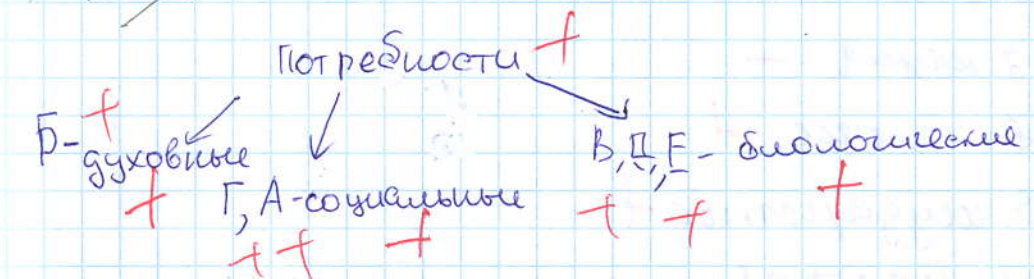 Потребности
Б - духовные
Г, А - социальные
В, Д, Е - биологические